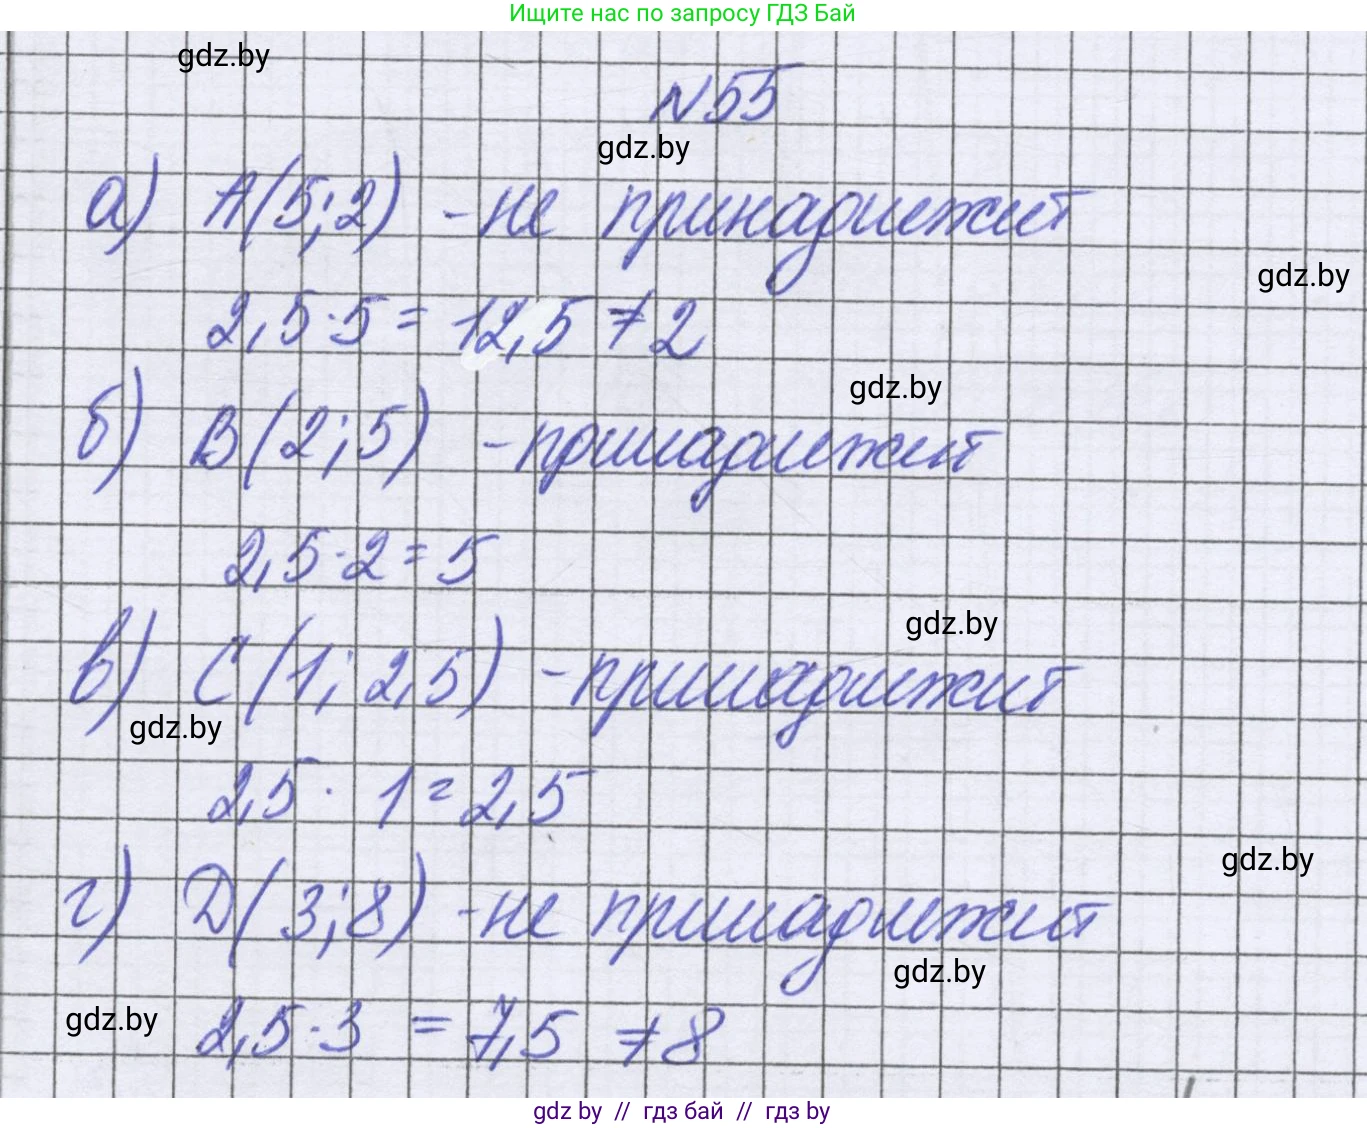 Ищите нас по запросу ГДЗ Бай
gdz.by
N55
gdz.by
а) A(5;2) - не принадлежит
gdz.by
2,5·5 = 12,5 ≠ 2
gdz.by
б) B(2;5) - принадлежит
2,5·2 = 5
gdz.by
в) C(1; 2,5) - принадлежит
gdz.by
2,5 · 1 = 2,5
gdz.by
г) D(3;8) - не принадлежит
gdz.by
gdz.by
2,5·3 = 7,5 ≠ 8
gdz by // гдз бай // гдз by